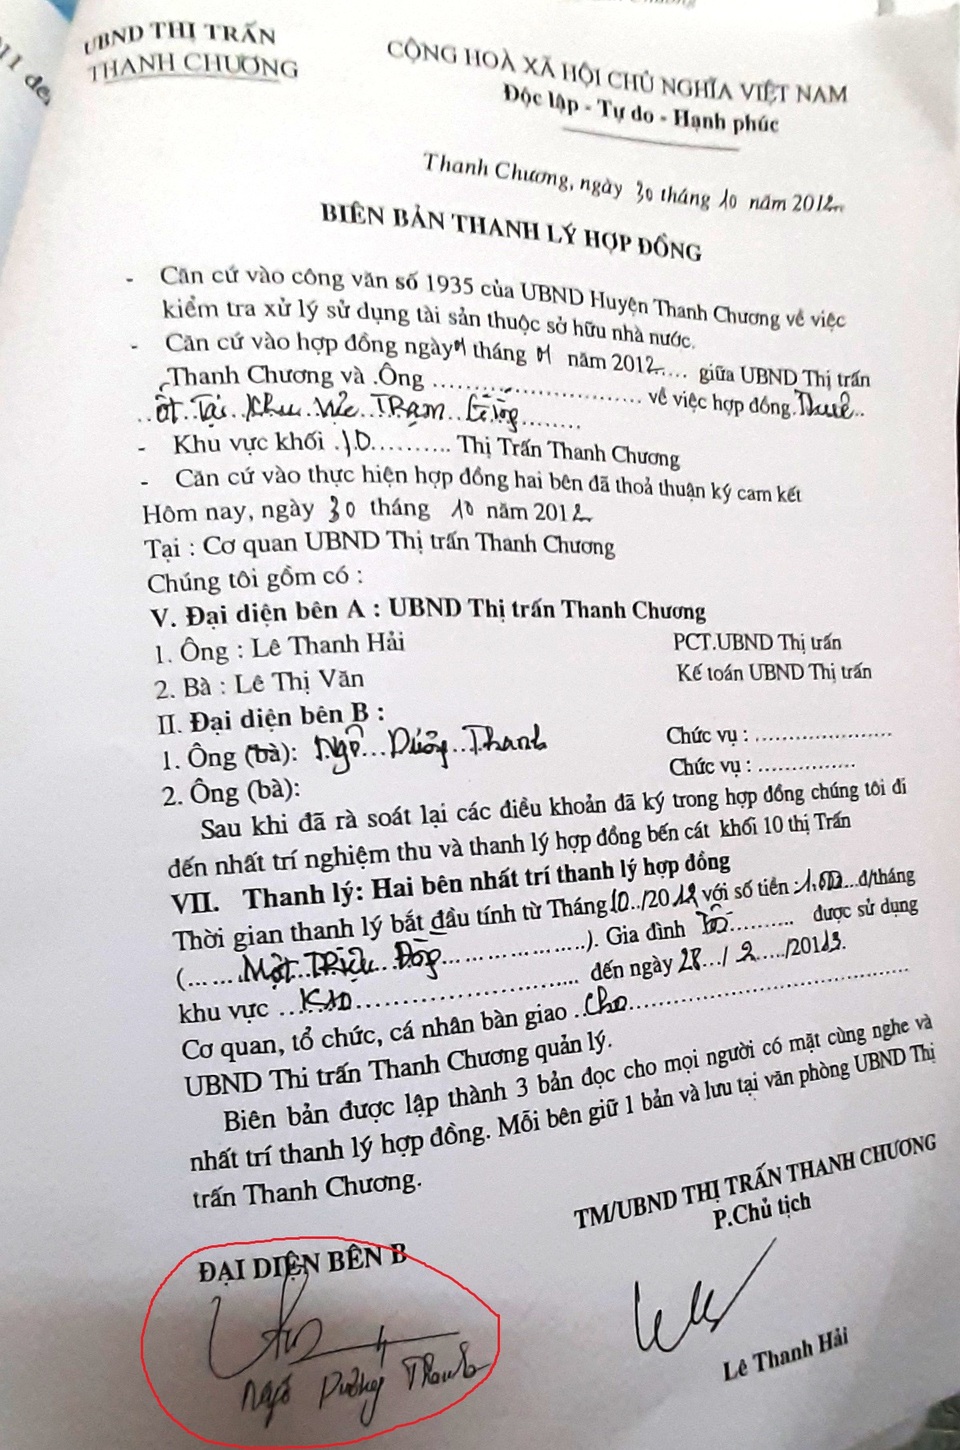 UBND THỊ TRẤN
THANH CHƯƠNG
CỘNG HOÀ XÃ HỘI CHỦ NGHĨA VIỆT NAM
Độc lập - Tự do - Hạnh phúc
Thanh Chương, ngày 30 tháng 10 năm 2012
BIÊN BẢN THANH LÝ HỢP ĐỒNG
- Căn cứ vào công văn số 1935 của UBND Huyện Thanh Chương về việc
kiểm tra xử lý sử dụng tài sản thuộc sở hữu nhà nước.
- Căn cứ vào hợp đồng ngày 01 tháng 01 năm 2012.... giữa UBND Thị trấn
Thanh Chương và .Ông .............................. về việc hợp đồng.Thuê..
Tại Khu Vực Trạm
- Khu vực khối .10.......... Thị Trấn Thanh Chương
- Căn cứ vào thực hiện hợp đồng hai bên đã thoả thuận ký cam kết
Hôm nay, ngày 30 tháng 10 năm 2012
Tại : Cơ quan UBND Thị trấn Thanh Chương
Chúng tôi gồm có :
V. Đại diện bên A : UBND Thị trấn Thanh Chương
1. Ông : Lê Thanh Hải PCT.UBND Thị trấn
2. Bà : Lê Thị Văn Kế toán UBND Thị trấn
II. Đại diện bên B :
1. Ông (bà): Ngô...Dường...Thanh Chức vụ : ....................
2. Ông (bà): Chức vụ : ..............
Sau khi đã rà soát lại các điều khoản đã ký trong hợp đồng chúng tôi đi
đến nhất trí nghiệm thu và thanh lý hợp đồng bến cát khối 10 thị Trấn
VII. Thanh lý: Hai bên nhất trí thanh lý hợp đồng
Thời gian thanh lý bắt đầu tính từ Tháng 10../2012 với số tiền :1.000...đ/tháng
(.......Một...Triệu...Đồng....................). Gia đình .......... được sử dụng
khu vực ........................ đến ngày 28.../ 2...../2013.
Cơ quan, tổ chức, cá nhân bàn giao ..cho..............................
UBND Thi trấn Thanh Chương quản lý.
Biên bản được lập thành 3 bản đọc cho mọi người có mặt cùng nghe và
nhất trí thanh lý hợp đồng. Mỗi bên giữ 1 bản và lưu tại văn phòng UBND Thị
trấn Thanh Chương.
TM/UBND THỊ TRẤN THANH CHƯƠNG
P.Chủ tịch
ĐẠI DIỆN BÊN B
Lê Thanh Hải
Ngô Dường Thanh